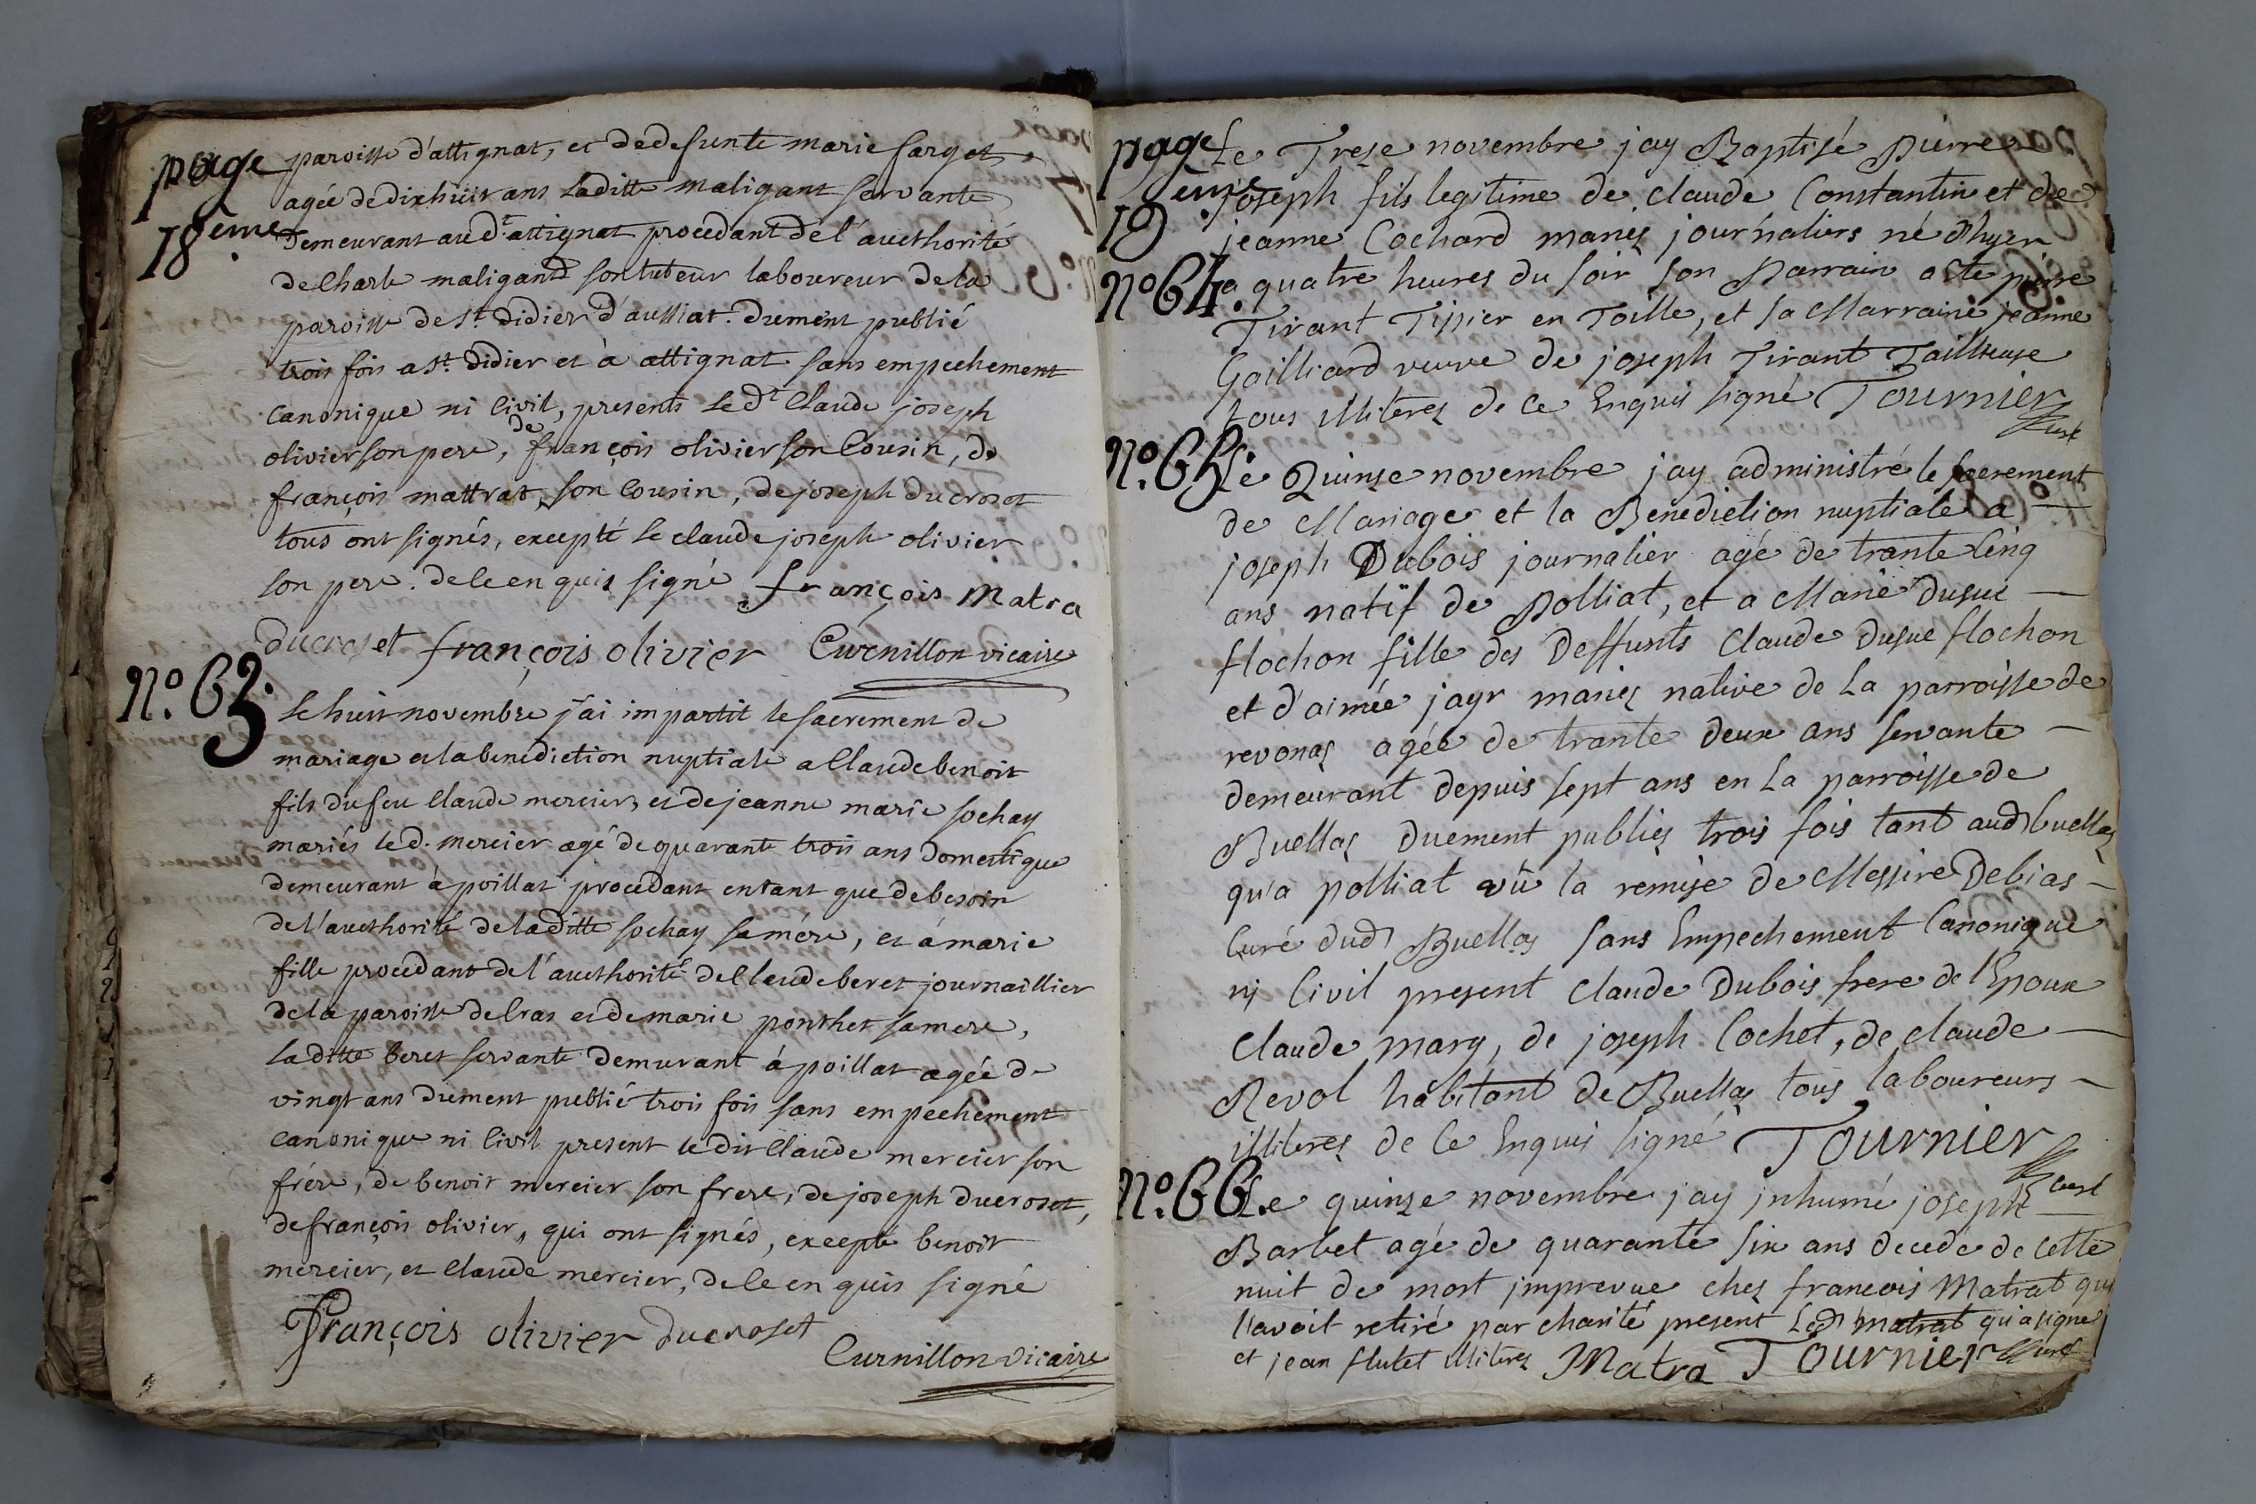 page
18 eme
paroisse d'attignat, et de defunte marie sarget
agée de dixhuit ans laditte maligant servante
demeurant aud.t attignat procedant de l'aucthorité
de Charle maligand son tuteur laboureur de la
paroisse de st. didier d'aussiat. dument publié
trois fois a st. didier et à attignat sans empechement
canonique ni Civil, presents le d.t Claude joseph
olivier son pere, de françois olivier son Cousin, de
françois mattrat, son Cousin, de joseph ducroset
tous ont signés, excepté le claude joseph olivier
son pere. de ce enquis signé françois Matra
ducroset françois olivier Curnillon vicaire
N.o 63.
le huit novembre j'ai impartit le sacrement de
mariage et la benediction nuptiale a Claude benoit
fils du feu Claude mercier, et de jeanne marie sochay
mariés le d. mercier agé de quarante trois ans domestique
demeurant à poillat procedant entant que de besoin
de l'aucthorité de laditte sochay sa mére, et à marie
fille procedant de l'aucthorité de Claude beret journaillier
de la paroisse de Cras et de marie ponthet sa mere,
laditte beret servante demurant à poillat agée de
vingt ans dument publié trois fois sans empechement
canonique ni Civil present le dit Claude mercier son
frére, de benoit mercier son frere, de joseph ducroset,
de françois olivier, qui ont signés, excepté benoit
mercier, et Claude mercier, de ce enquis signé
François olivier ducroset
Curnillon vicaire
page
19 eme
N.o 64.
Le Treze novembre jay Baptisé Pierre
joseph fils legitime de claude Constantin et de
jeanne Cochard mariez journaliers né d'hyer
a quatre heures du soir son Parrain a ete pierre
Tirant Tissier en Toille, et sa Marraine jeanne
Gailliard veuve de joseph Tirant Tailleuse
tous illiterez de ce Enquis signé Tournier
Curé
N.o 65.
Le Quinze novembre jay administré le sacrement
de Mariage et la Benediction nuptiale a
joseph Dubois journalier agé de trante Cinq
ans natif de Polliat, et a Marie dusuc
flochon fille des Deffunts Claude dusuc flochon
et d'aimée jayr mariez native de La parroisse de
revonaz agée de trante deux ans servante
demeurant depuis sept ans en La parroisse de
Buellaz duement publiez trois fois tant aud buellaz
qu'a polliat vû la remise de Messire Debias
Curé dud Buellaz sans Empechement Canonique
ny Civil present Claude Dubois frere de l'Epoux
Claude mary, de joseph Cochet, de claude
Revol habitant de Buellaz tous laboureurs
illiterez de ce Enquis signé Tournier
Curé
N.o 66.
Le quinze novembre jay inhumé joseph
Barbet agé de quarante six ans decede de cette
nuit de mort imprevue chez francois Matrat qui
l'avoit retiré par charité present Led matrat qui a signé
et jean flutet illiterez Matra Tournier Curé